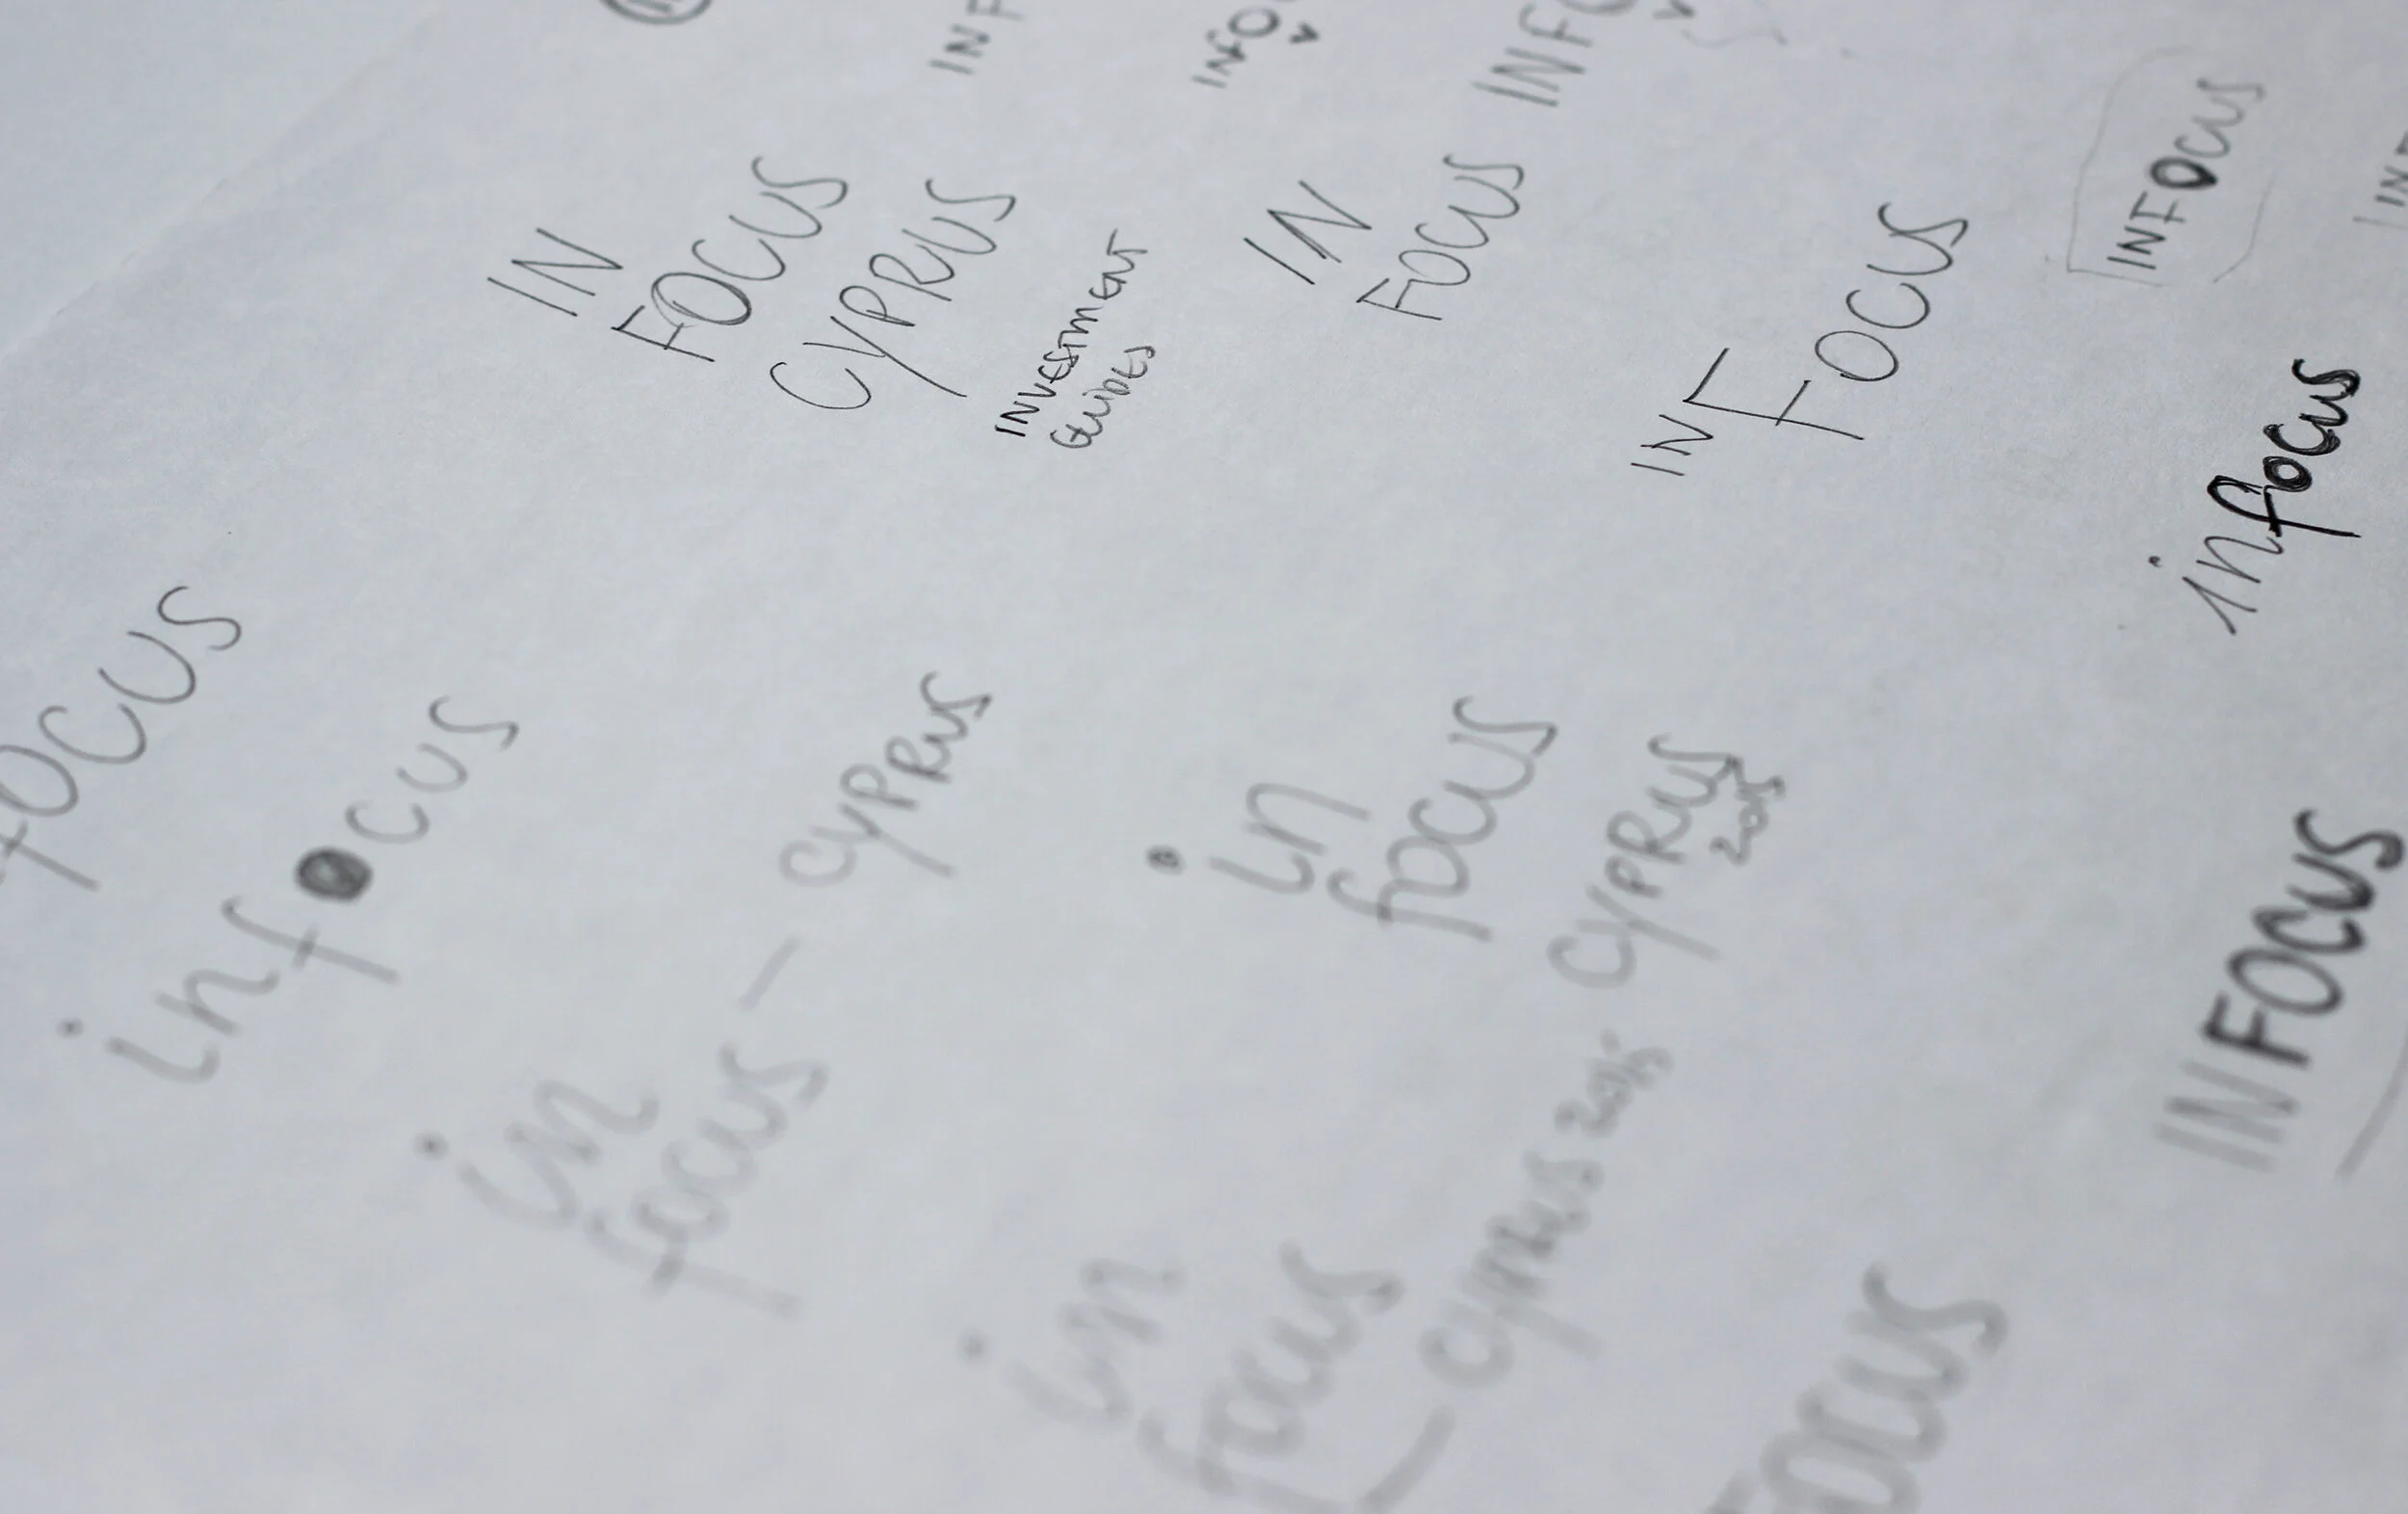 INF
INFO
INF
IN
FOCUS
CYPRUS
INVESTMENT
GUIDES
IN
FOCUS
INF
FOCUS
INFOCUS
IN
infocus
FOCUS
infocus
in
focus - CYPRUS
in
focus
CYPRUS
2015
INFOCUS
in
focus
- CYPRUS 2015
FOCUS